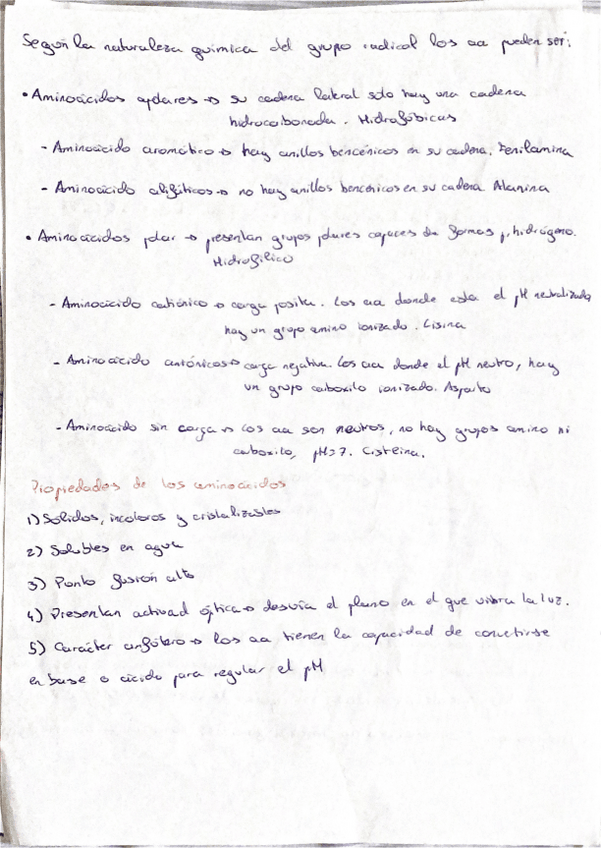 Según la naturaleza química del grupo radical los aa pueden ser:
• Aminoácidos apolares → su cadena lateral solo hay una cadena
hidrocarbonada. Hidrofóbicas
- Aminoácido aromático → hay anillos bencénicos en su cadena. Fenilamina
- Aminoácido alifáticos → no hay anillos bencénicos en su cadena Alanina
• Aminoácidos polar → presentan grupos polares capaces de formas p. hidrógeno.
Hidrofílico
- Aminoácido catiónico → carga posita. Los aa donde esta el pH neutralizado
hay un grupo amino ionizado. Lisina
- Aminoácido aniónicos → carga negativa. Los aa donde el pH neutro, hay
un grupo carboxilo ionizado. Asparto
- Aminoácido sin carga → Los aa son neutros, no hay grupos amino ni
carboxilo, pH=7. Cisteina.
Propiedades de los aminoácidos
1) Solidos, incoloros y cristalizables
2) Solubles en agua
3) Ponto fusión alto
4) Presentan activad óptica → desvía el plano en el que vibra la luz.
5) Carácter anfótero → los aa tienen la capacidad de convetirse
en base o ácido para regular el pH